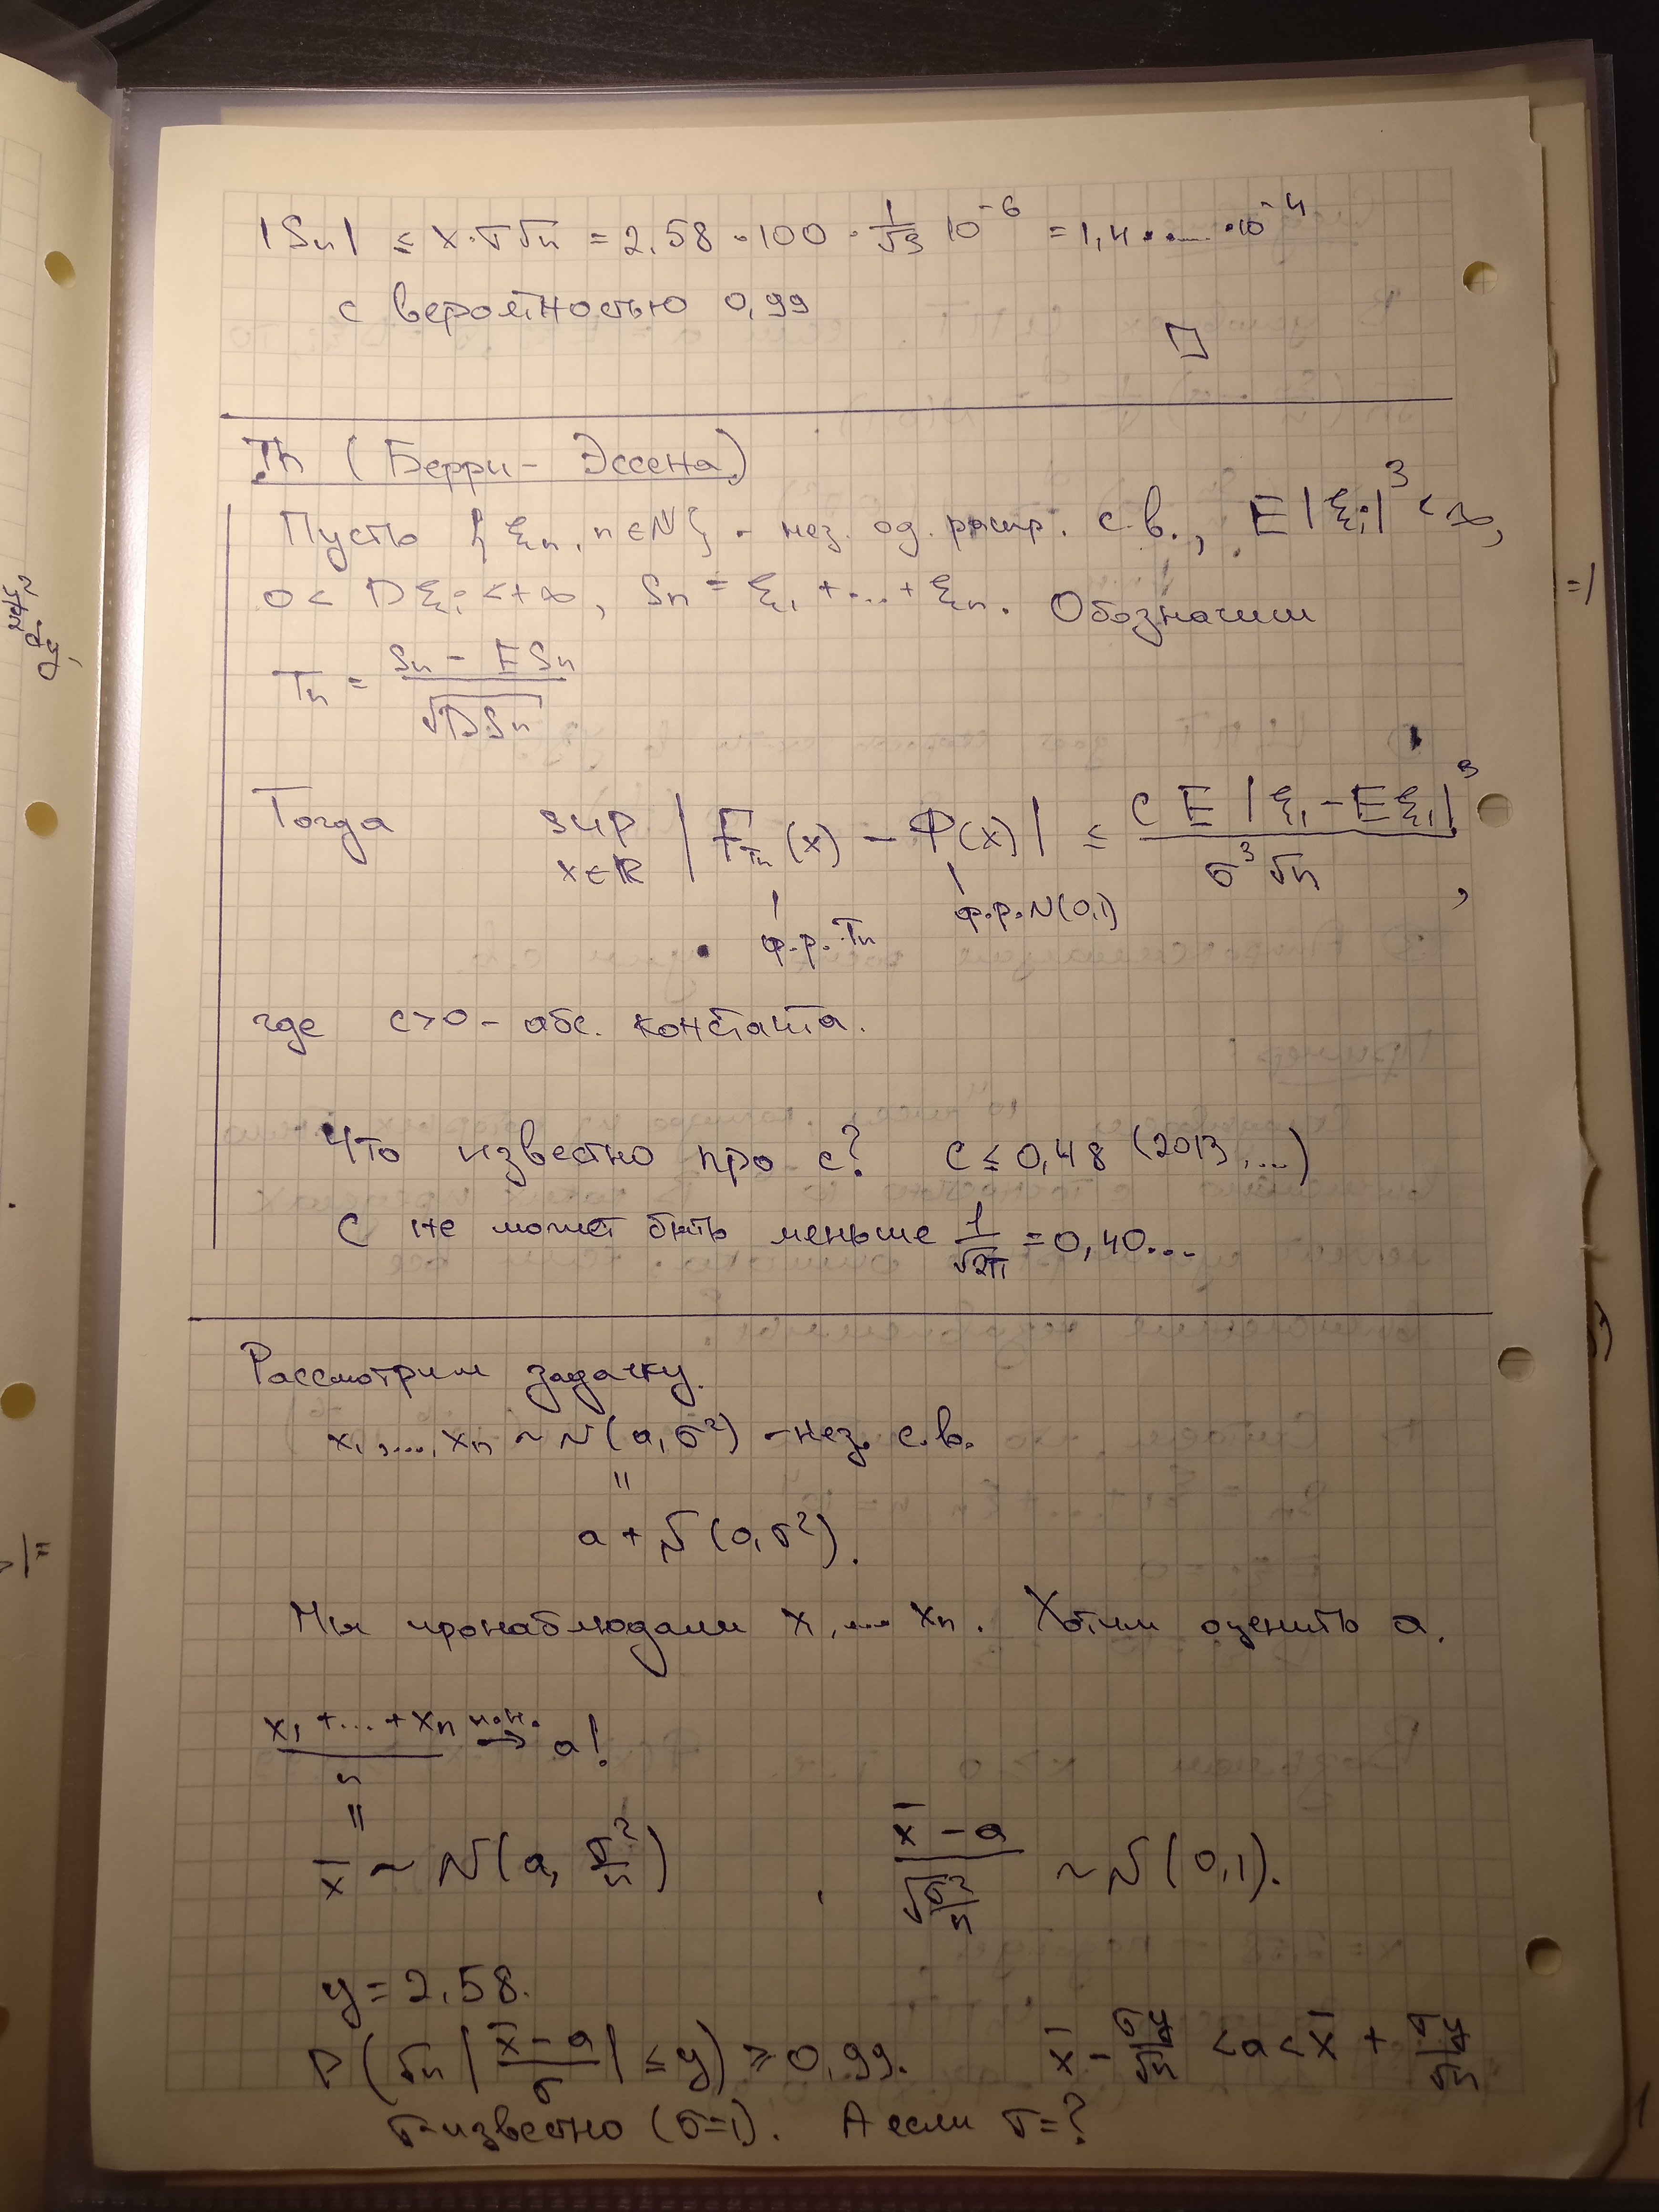 |Sn| ≤ x·σ√n = 2,58 · 100 · 1/√3 10^-6 = 1,4..... ·10^-4
с вероятностью 0,99
□
Th (Берри-Эссена)
Пусть {ξn, n∈N} - нез. од. распр. с.в., E|ξi|^3 < ∞,
0 < Dξi < +∞, Sn = ξ1 + ... + ξn. Обозначим
Tn = (Sn - ESn) / √DSn
Тогда sup x∈R |F_Tn(x) - Ф(x)| ≤ C E|ξ1 - Eξ1|^3 / (σ^3 √n),
ф.р. Tn ф.р. N(0,1)
где c>0 - абс. константа.
Что известно про с? C ≤ 0,48 (2013,...)
C не может быть меньше 1/√2π = 0,40...
Рассмотрим задачку.
x1,...,xn ~ N(a, σ²) - нез. с.в.
=
a + N(0, σ²).
Мы пронаблюдали x1... xn. Хотим оценить a.
(x1 + ... + xn) / n п.н.→ a!
=
x̄ ~ N(a, σ²/n) , (x̄ - a) / √(σ²/n) ~ N(0,1).
y = 2,58.
P(√n |(x̄ - a)/σ| ≤ y) ≥ 0,99. x̄ - σy/√n < a < x̄ + σy/√n
σ-известно (σ=1). А если σ=?